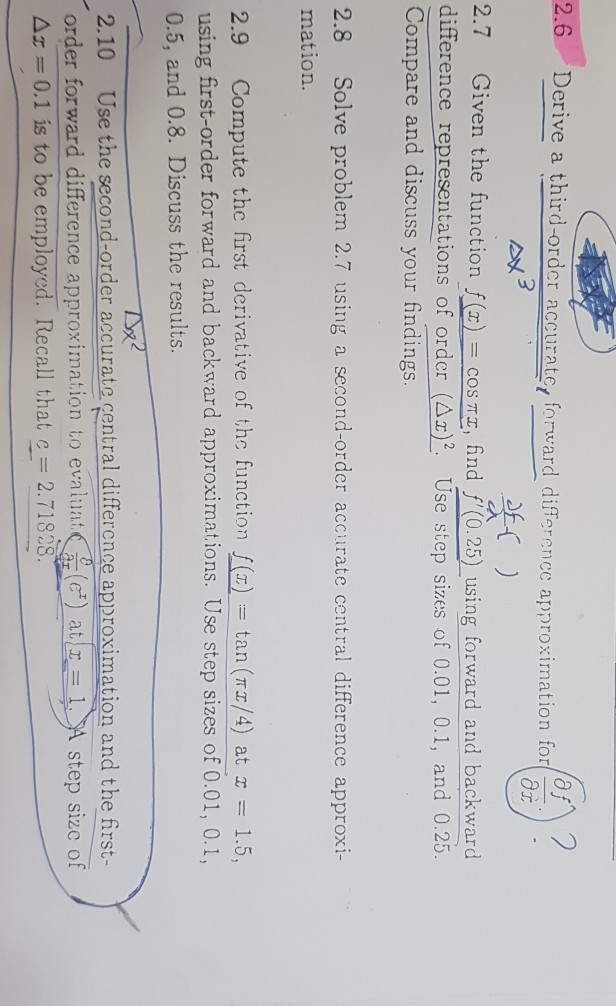 2.6 Derive a third-order accurate, forward difference approximation for ∂f/∂x. ?
Δx³
∂f/∂x ( )
2.7 Given the function f(x) = cos πx, find f′(0.25) using forward and backward
difference representations of order (Δx)². Use step sizes of 0.01, 0.1, and 0.25.
Compare and discuss your findings.
2.8 Solve problem 2.7 using a second-order accurate central difference approxi-
mation.
2.9 Compute the first derivative of the function f(x) = tan(πx/4) at x = 1.5,
using first-order forward and backward approximations. Use step sizes of 0.01, 0.1,
0.5, and 0.8. Discuss the results.
Δx²
2.10 Use the second-order accurate central difference approximation and the first-
order forward difference approximation to evaluate ∂/∂x (eˣ) at x = 1. A step size of
Δx = 0.1 is to be employed. Recall that e = 2.71828.